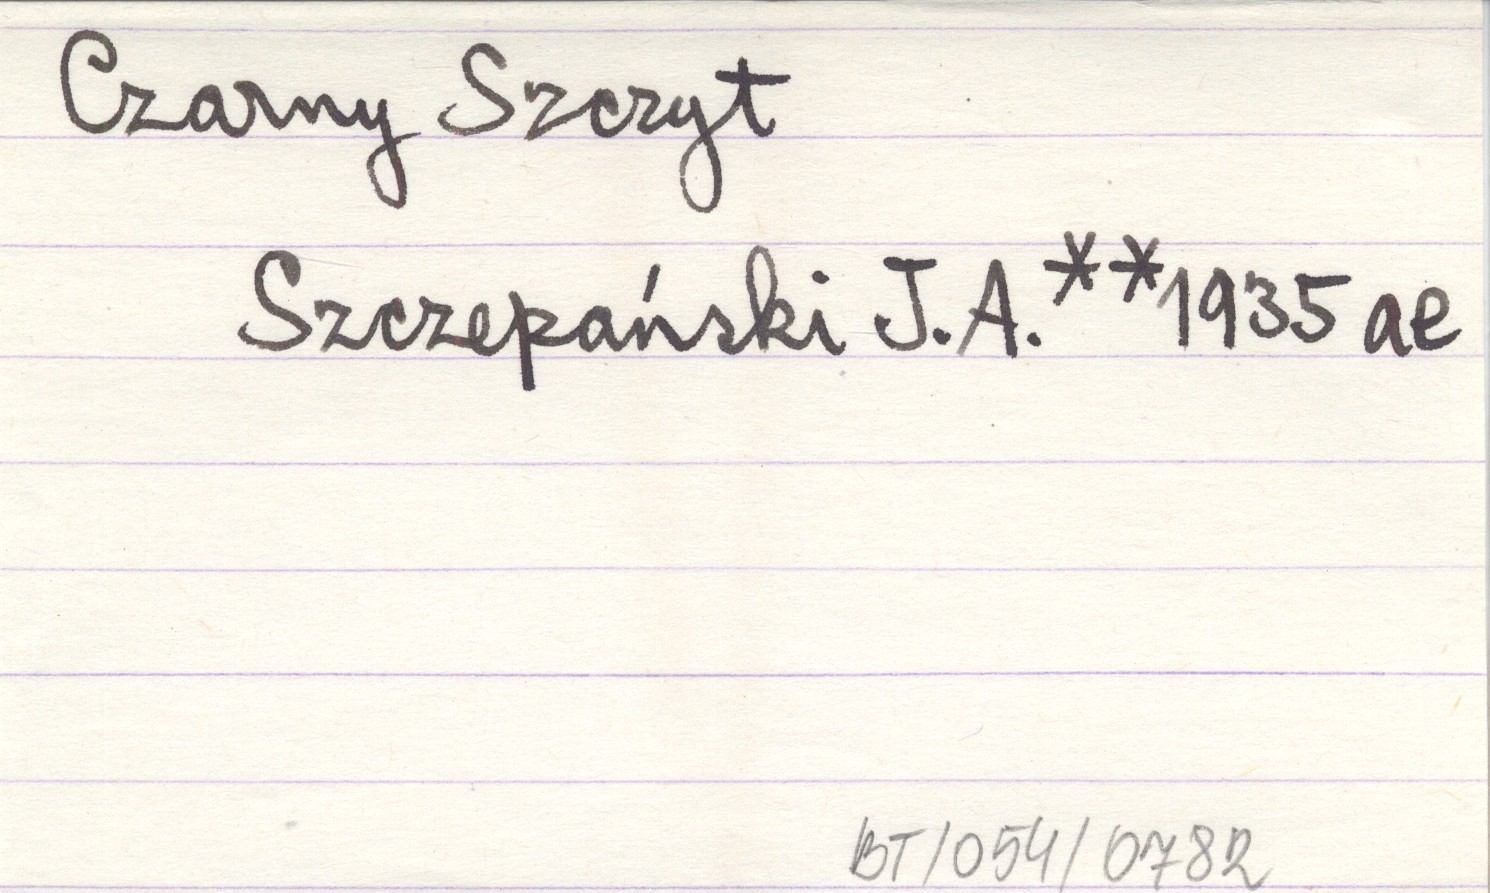 Czarny Szczyt
Szczepański J.A.**1935 ae
BT/054/0782